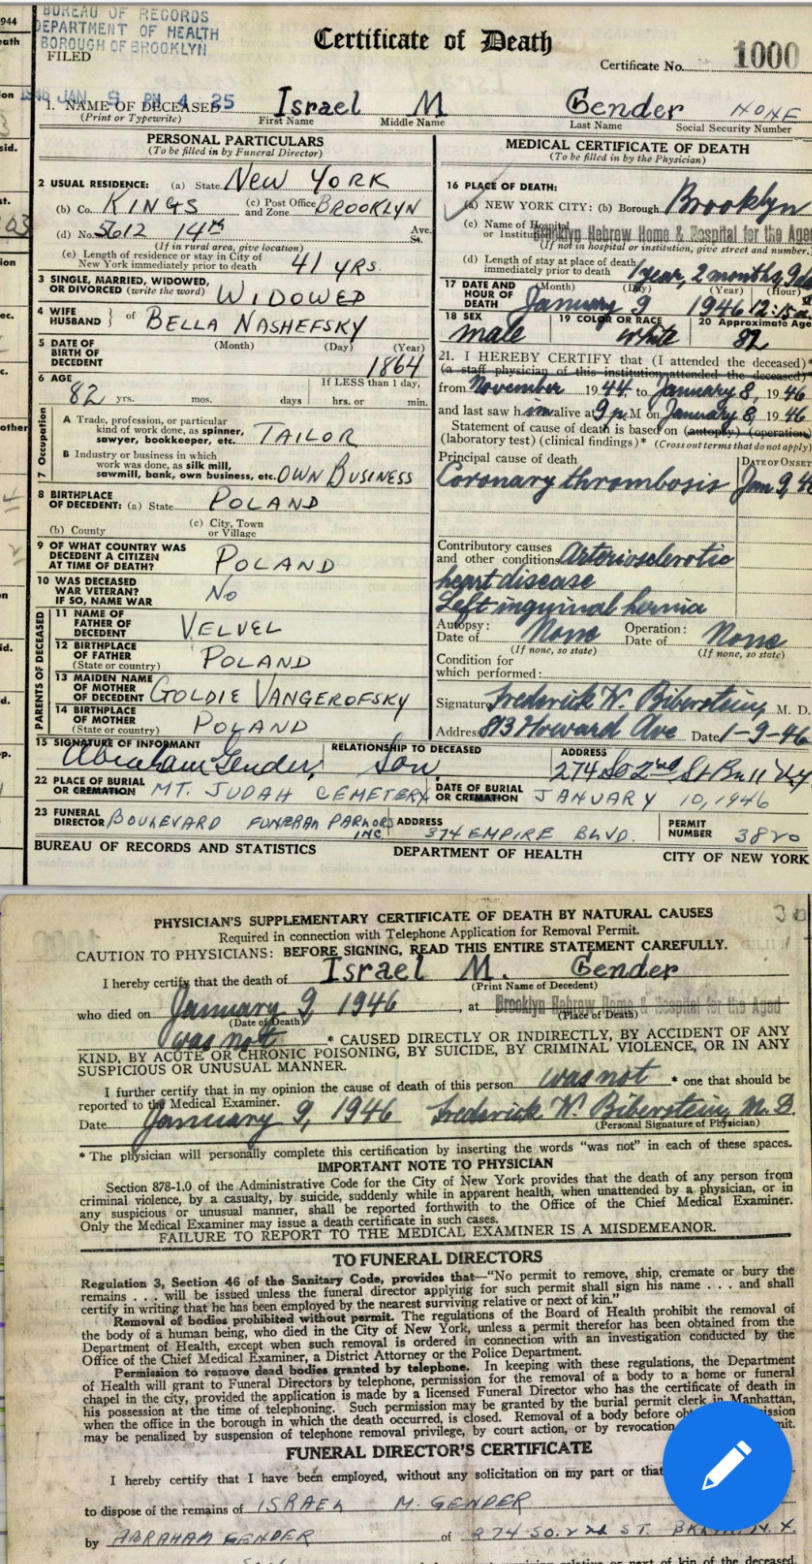 944
BUREAU OF RECORDS
DEPARTMENT OF HEALTH
BOROUGH OF BROOKLYN
FILED
JAN 9 PM 4 25
Certificate of Death
Certificate No. 1000
1. NAME OF DECEASED Israel M Gender NONE
(Print or Typewrite) First Name Middle Name Last Name Social Security Number
PERSONAL PARTICULARS
(To be filled in by Funeral Director)
2 USUAL RESIDENCE: (a) State NEW YORK
(b) Co. KINGS (c) Post Office and Zone BROOKLYN
(d) No. 5612 14th Ave. St.
(If in rural area, give location)
(e) Length of residence or stay in City of
New York immediately prior to death 41 YRS.
3 SINGLE, MARRIED, WIDOWED,
OR DIVORCED (write the word) WIDOWED
4 WIFE HUSBAND } of BELLA NASHEFSKY
5 DATE OF BIRTH OF DECEDENT (Month) (Day) (Year) 1864
6 AGE If LESS than 1 day,
82 yrs. mos. days hrs. or min.
7 Occupation
A Trade, profession, or particular
kind of work done, as spinner,
sawyer, bookkeeper, etc. TAILOR
B Industry or business in which
work was done, as silk mill,
sawmill, bank, own business, etc. OWN BUSINESS
8 BIRTHPLACE
OF DECEDENT: (a) State POLAND
(b) County (c) City, Town or Village
9 OF WHAT COUNTRY WAS
DECEDENT A CITIZEN
AT TIME OF DEATH? POLAND
10 WAS DECEASED
WAR VETERAN?
IF SO, NAME WAR NO
PARENTS OF DECEASED
11 NAME OF
FATHER OF
DECEDENT VELVEL
12 BIRTHPLACE
OF FATHER
(State or country) POLAND
13 MAIDEN NAME
OF MOTHER
OF DECEDENT GOLDIE VANGEROFSKY
14 BIRTHPLACE
OF MOTHER
(State or country) POLAND
MEDICAL CERTIFICATE OF DEATH
(To be filled in by the Physician)
16 PLACE OF DEATH:
(a) NEW YORK CITY: (b) Borough Brooklyn
(c) Name of Hospital
or Institution Brooklyn Hebrew Home & Hospital for the Aged
(If not in hospital or institution, give street and number.)
(d) Length of stay at place of death
immediately prior to death 1 year, 2 months, 9 da
17 DATE AND HOUR OF DEATH (Month) (Day) (Year) (Hour)
January 9 1946 12:15 a
18 SEX 19 COLOR OR RACE 20 Approximate Age
male white 82
21. I HEREBY CERTIFY that (I attended the deceased)*
(a staff physician of this institution attended the deceased)*
from November 1944 to January 8, 1946
and last saw him alive at 9 p.M on January 8, 1946
Statement of cause of death is based on (autopsy) (operation)
(laboratory test) (clinical findings)* (Cross out terms that do not apply)
Principal cause of death DATE OF ONSET
Coronary thrombosis Jan 9, 4
Contributory causes
and other conditions Arteriosclerotic
heart disease
Left inguinal hernia
Autopsy: Date of None Operation: Date of None
(If none, so state) (If none, so state)
Condition for
which performed:
Signature Frederick W. Biberstein, M. D.
Address 813 Howard Ave Date 1-9-46
15 SIGNATURE OF INFORMANT RELATIONSHIP TO DECEASED ADDRESS
Abraham Gender, Son 274 So 2nd St
22 PLACE OF BURIAL OR CREMATION MT. JUDAH CEMETERY DATE OF BURIAL OR CREMATION JANUARY 10, 1946
23 FUNERAL DIRECTOR BOULEVARD FUNERAL PARLORS INC. ADDRESS 374 EMPIRE BLVD. PERMIT NUMBER 3820
BUREAU OF RECORDS AND STATISTICS DEPARTMENT OF HEALTH CITY OF NEW YORK
PHYSICIAN'S SUPPLEMENTARY CERTIFICATE OF DEATH BY NATURAL CAUSES
Required in connection with Telephone Application for Removal Permit.
CAUTION TO PHYSICIANS: BEFORE SIGNING, READ THIS ENTIRE STATEMENT CAREFULLY.
I hereby certify that the death of Israel M. Gender
(Print Name of Decedent)
who died on January 9, 1946, at Brooklyn Hebrew Home & Hospital for the Aged
(Date of Death) (Place of Death)
was not * CAUSED DIRECTLY OR INDIRECTLY, BY ACCIDENT OF ANY
KIND, BY ACUTE OR CHRONIC POISONING, BY SUICIDE, BY CRIMINAL VIOLENCE, OR IN ANY
SUSPICIOUS OR UNUSUAL MANNER.
I further certify that in my opinion the cause of death of this person was not * one that should be
reported to the Medical Examiner.
Date January 9, 1946 Frederick W. Biberstein, M.D.
(Personal Signature of Physician)
* The physician will personally complete this certification by inserting the words "was not" in each of these spaces.
IMPORTANT NOTE TO PHYSICIAN
Section 878-1.0 of the Administrative Code for the City of New York provides that the death of any person from
criminal violence, by a casualty, by suicide, suddenly while in apparent health, when unattended by a physician, or in
any suspicious or unusual manner, shall be reported forthwith to the Office of the Chief Medical Examiner.
Only the Medical Examiner may issue a death certificate in such cases.
FAILURE TO REPORT TO THE MEDICAL EXAMINER IS A MISDEMEANOR.
TO FUNERAL DIRECTORS
Regulation 3, Section 46 of the Sanitary Code, provides that—"No permit to remove, ship, cremate or bury the
remains . . . will be issued unless the funeral director applying for such permit shall sign his name . . . and shall
certify in writing that he has been employed by the nearest surviving relative or next of kin."
Removal of bodies prohibited without permit. The regulations of the Board of Health prohibit the removal of
the body of a human being, who died in the City of New York, unless a permit therefor has been obtained from the
Department of Health, except when such removal is ordered in connection with an investigation conducted by the
Office of the Chief Medical Examiner, a District Attorney or the Police Department.
Permission to remove dead bodies granted by telephone. In keeping with these regulations, the Department
of Health will grant to Funeral Directors by telephone, permission for the removal of a body to a home or funeral
chapel in the city, provided the application is made by a licensed Funeral Director who has the certificate of death in
his possession at the time of telephoning. Such permission may be granted by the burial permit clerk in Manhattan,
when the office in the borough in which the death occurred, is closed. Removal of a body before
may be penalized by suspension of telephone removal privilege, by court action, or by revocation
FUNERAL DIRECTOR'S CERTIFICATE
I hereby certify that I have been employed, without any solicitation on my part or that
to dispose of the remains of ISRAEL M. GENDER
by ABRAHAM GENDER of 274 SO. 2nd ST. BKLYN. N.Y.